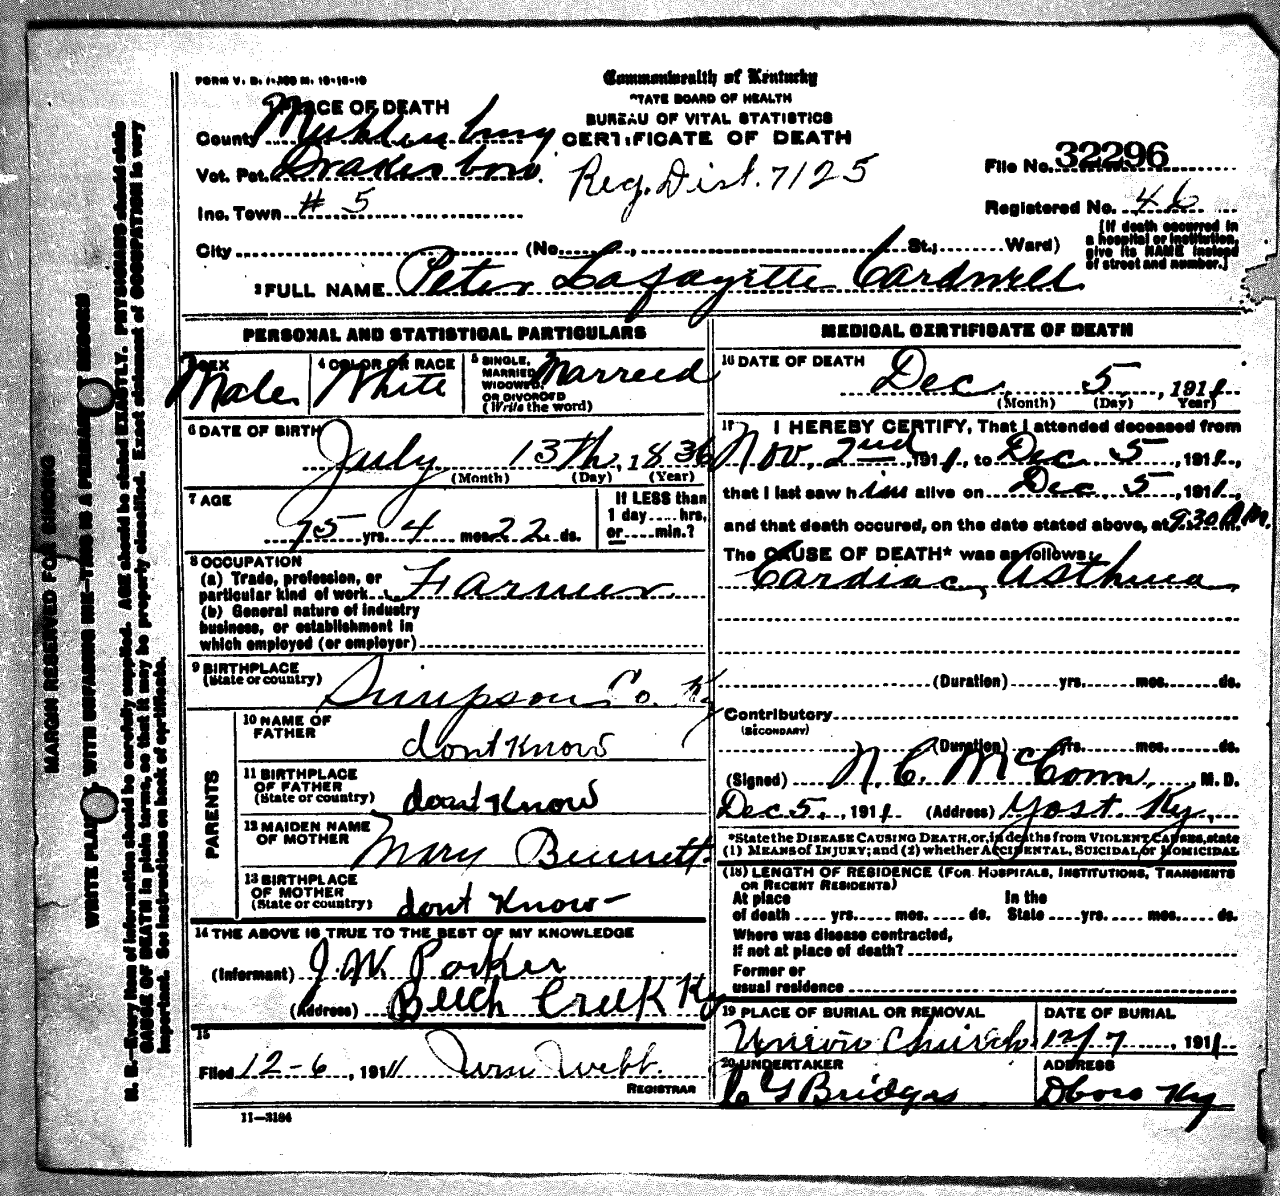 FORM V. S. 1-300 M. 10-15-10
Commonwealth of Kentucky
STATE BOARD OF HEALTH
BUREAU OF VITAL STATISTICS
CERTIFICATE OF DEATH
1 PLACE OF DEATH
County Muhlenburg
Vot. Pct. Drakesboro
Inc. Town # 5
Reg. Dist. 7125
File No. 32296
Registered No. 46
City (No. , St.; Ward)
[If death occurred in a hospital or institution, give its NAME instead of street and number.]
2 FULL NAME Peter Lafayette Cardwell
PERSONAL AND STATISTICAL PARTICULARS
3 SEX Male
4 COLOR OR RACE White
5 SINGLE, MARRIED, WIDOWED, OR DIVORCED (Write the word) Marreed
6 DATE OF BIRTH July 13th, 1836
(Month) (Day) (Year)
7 AGE 75 yrs. 4 mos. 22 ds.
If LESS than 1 day .... hrs, or .... min.?
8 OCCUPATION
(a) Trade, profession, or particular kind of work Farmer
(b) General nature of industry business, or establishment in which employed (or employer)
9 BIRTHPLACE (State or country) Simpson Co. Ky
PARENTS
10 NAME OF FATHER dont Know
11 BIRTHPLACE OF FATHER (State or country) dont Know
12 MAIDEN NAME OF MOTHER Mary Bennett
13 BIRTHPLACE OF MOTHER (State or country) dont Know
14 THE ABOVE IS TRUE TO THE BEST OF MY KNOWLEDGE
(Informant) J. W. Parker
(Address) Beech Creek Ky
15
Filed 12-6, 1911 Wm Webb
REGISTRAR
11—3184
MEDICAL CERTIFICATE OF DEATH
16 DATE OF DEATH Dec. 5, 1911
(Month) (Day) Year)
17 I HEREBY CERTIFY, That I attended deceased from
Nov. 2nd, 1911, to Dec 5, 1911,
that I last saw him alive on Dec. 5, 1911,
and that death occured, on the date stated above, at 9:30 A.M.
The CAUSE OF DEATH* was as follows:
Cardiac, Asthma
(Duration) yrs. mos. ds.
Contributory
(SECONDARY)
(Duration) yrs. mos. ds.
(Signed) N. C. McConn, M. D.
Dec 5., 1911 (Address) Yost. Ky.,
*State the DISEASE CAUSING DEATH, or, in deaths from VIOLENT CAUSES, state
(1) MEANS of INJURY; and (2) whether ACCIDENTAL, SUICIDAL or HOMICIDAL
(18) LENGTH OF RESIDENCE (FOR HOSPITALS, INSTITUTIONS, TRANSIENTS OR RECENT RESIDENTS)
At place of death .... yrs. .... mos. .... ds. In the State .... yrs. .... mos. .... ds.
Where was disease contracted,
if not at place of death?
Former or usual residence
19 PLACE OF BURIAL OR REMOVAL Union Church
DATE OF BURIAL 12/7, 1911
20 UNDERTAKER C Y Bridges
ADDRESS Dboro Ky
MARGIN RESERVED FOR BINDING
WRITE PLAINLY, WITH UNFADING INK—THIS IS A PERMANENT RECORD
N. B.—Every item of information should be carefully supplied. AGE should be stated EXACTLY. PHYSICIANS should state
CAUSE OF DEATH in plain terms, so that it may be properly classified. Exact statement of OCCUPATION is very
important. See instructions on back of certificate.